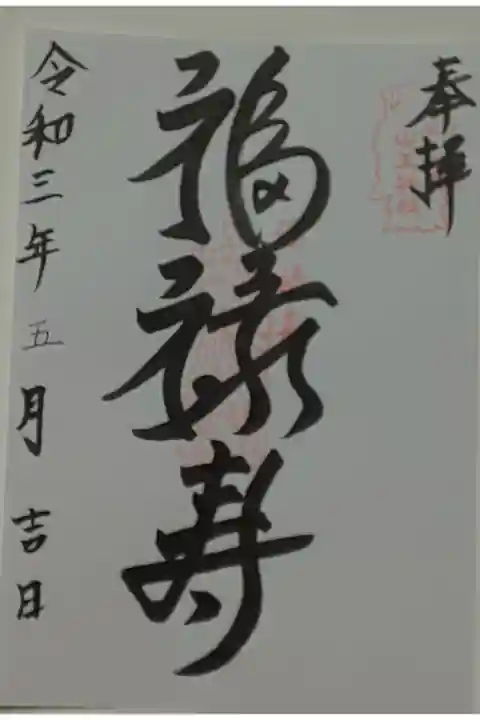 奉拝
福禄寿
令和三年五月吉日